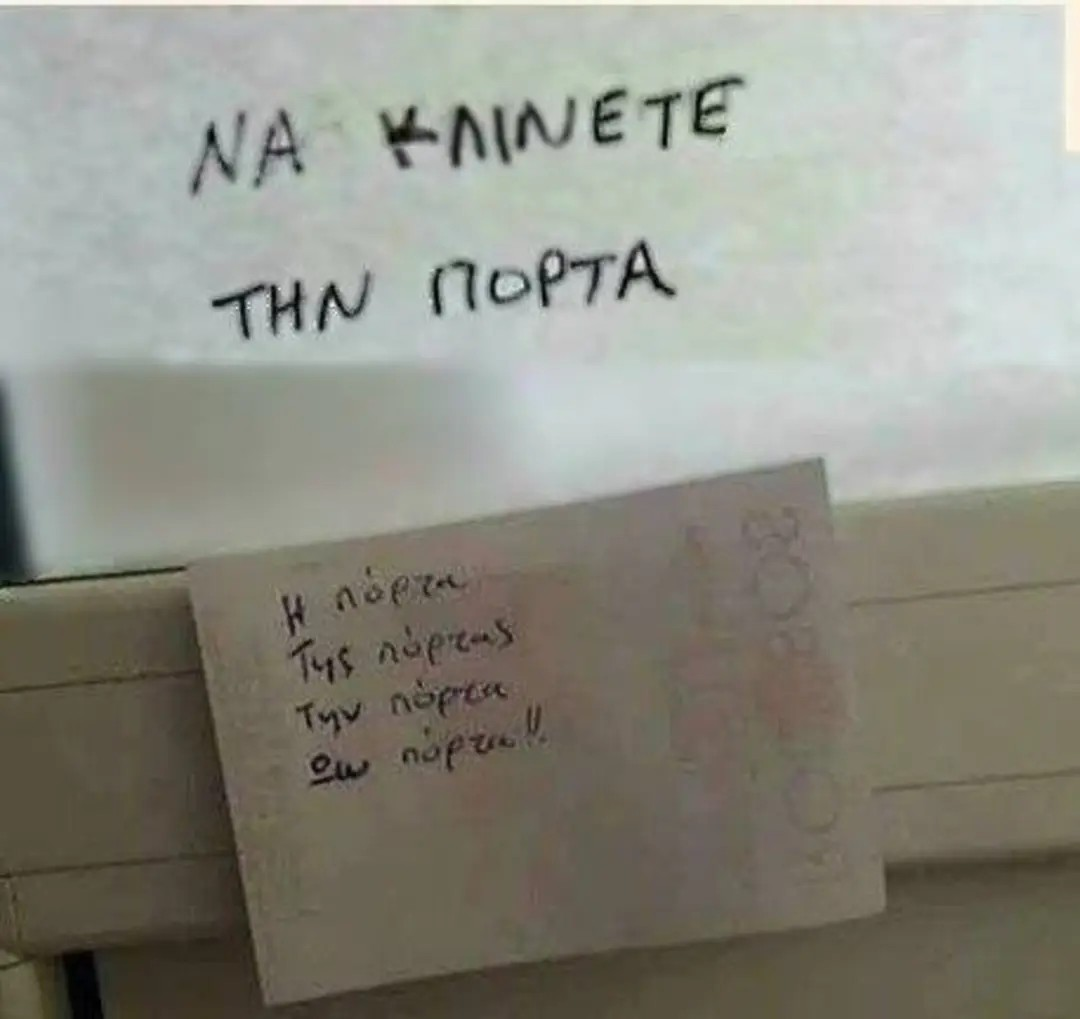 ΝΑ ΚΛΙΝΕΤΕ
ΤΗΝ ΠΟΡΤΑ
Η πόρτα
Της πόρτας
Την πόρτα
Ωω πόρτα!!